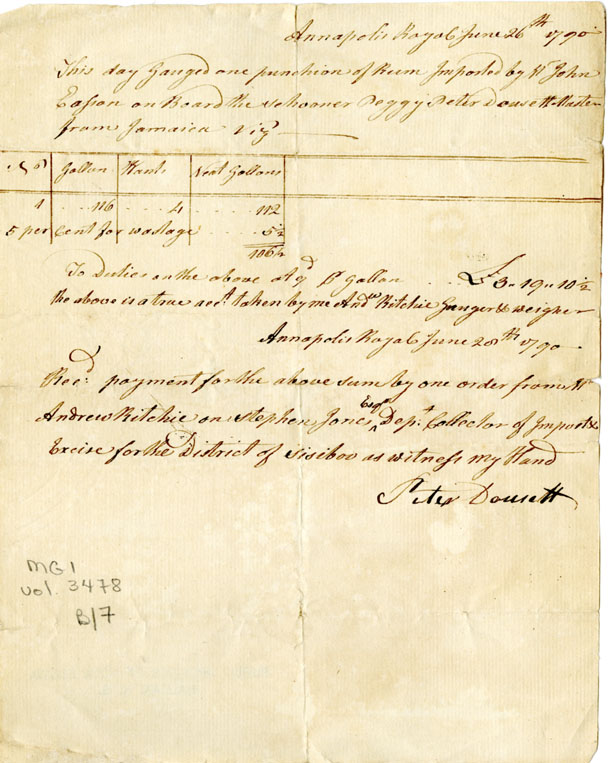 Annapolis Royal June 26th 1790
This day Gauged one puncheon of Rum Imported by Mr John
Easson on Board the Schooner Peggy Peter Dousett Master
from Jamaica Viz
No Gallon Wants Neat Gallons
1 116 4 112
5 per Cent for wastage 5½
106½
To Duties on the above at 9d pr Gallon £3" 19" 10½
the above is a true acct. taken by me Andw Ritchie Gauger & weigher
Annapolis Royal June 28th 1790
Recd. payment for the above sum by one order from Mr
Andrew Ritchie on Stephen Jones Esqr Dept Collector of Impost &
Excise for the District of Sisiboo as witness my Hand
Peter Dousett
MG1
vol. 3478
B/7